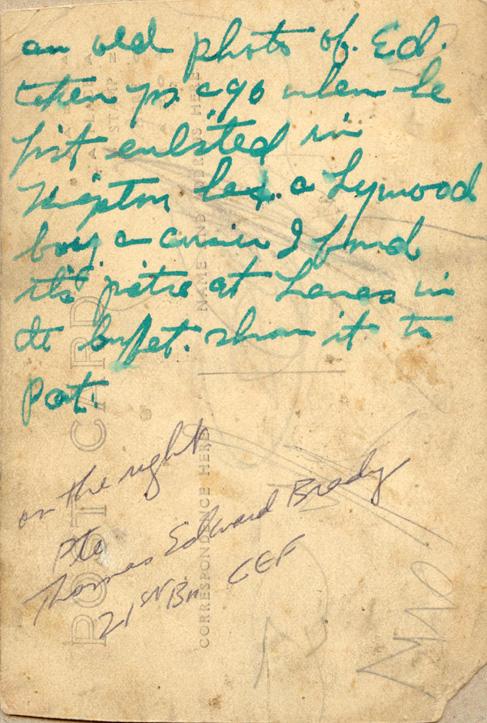 an old photo of Ed.
taken yrs. ago when he
first enlisted in
a Lynwood
boy a cousin I found
the at Lena's in
buffet. show it to
Pat.
on the right
Pte
Thomas Edward Brady
21st Bn CEF
POST CARD
CORRESPONDENCE HERE
NAME AND ADDRESS HERE